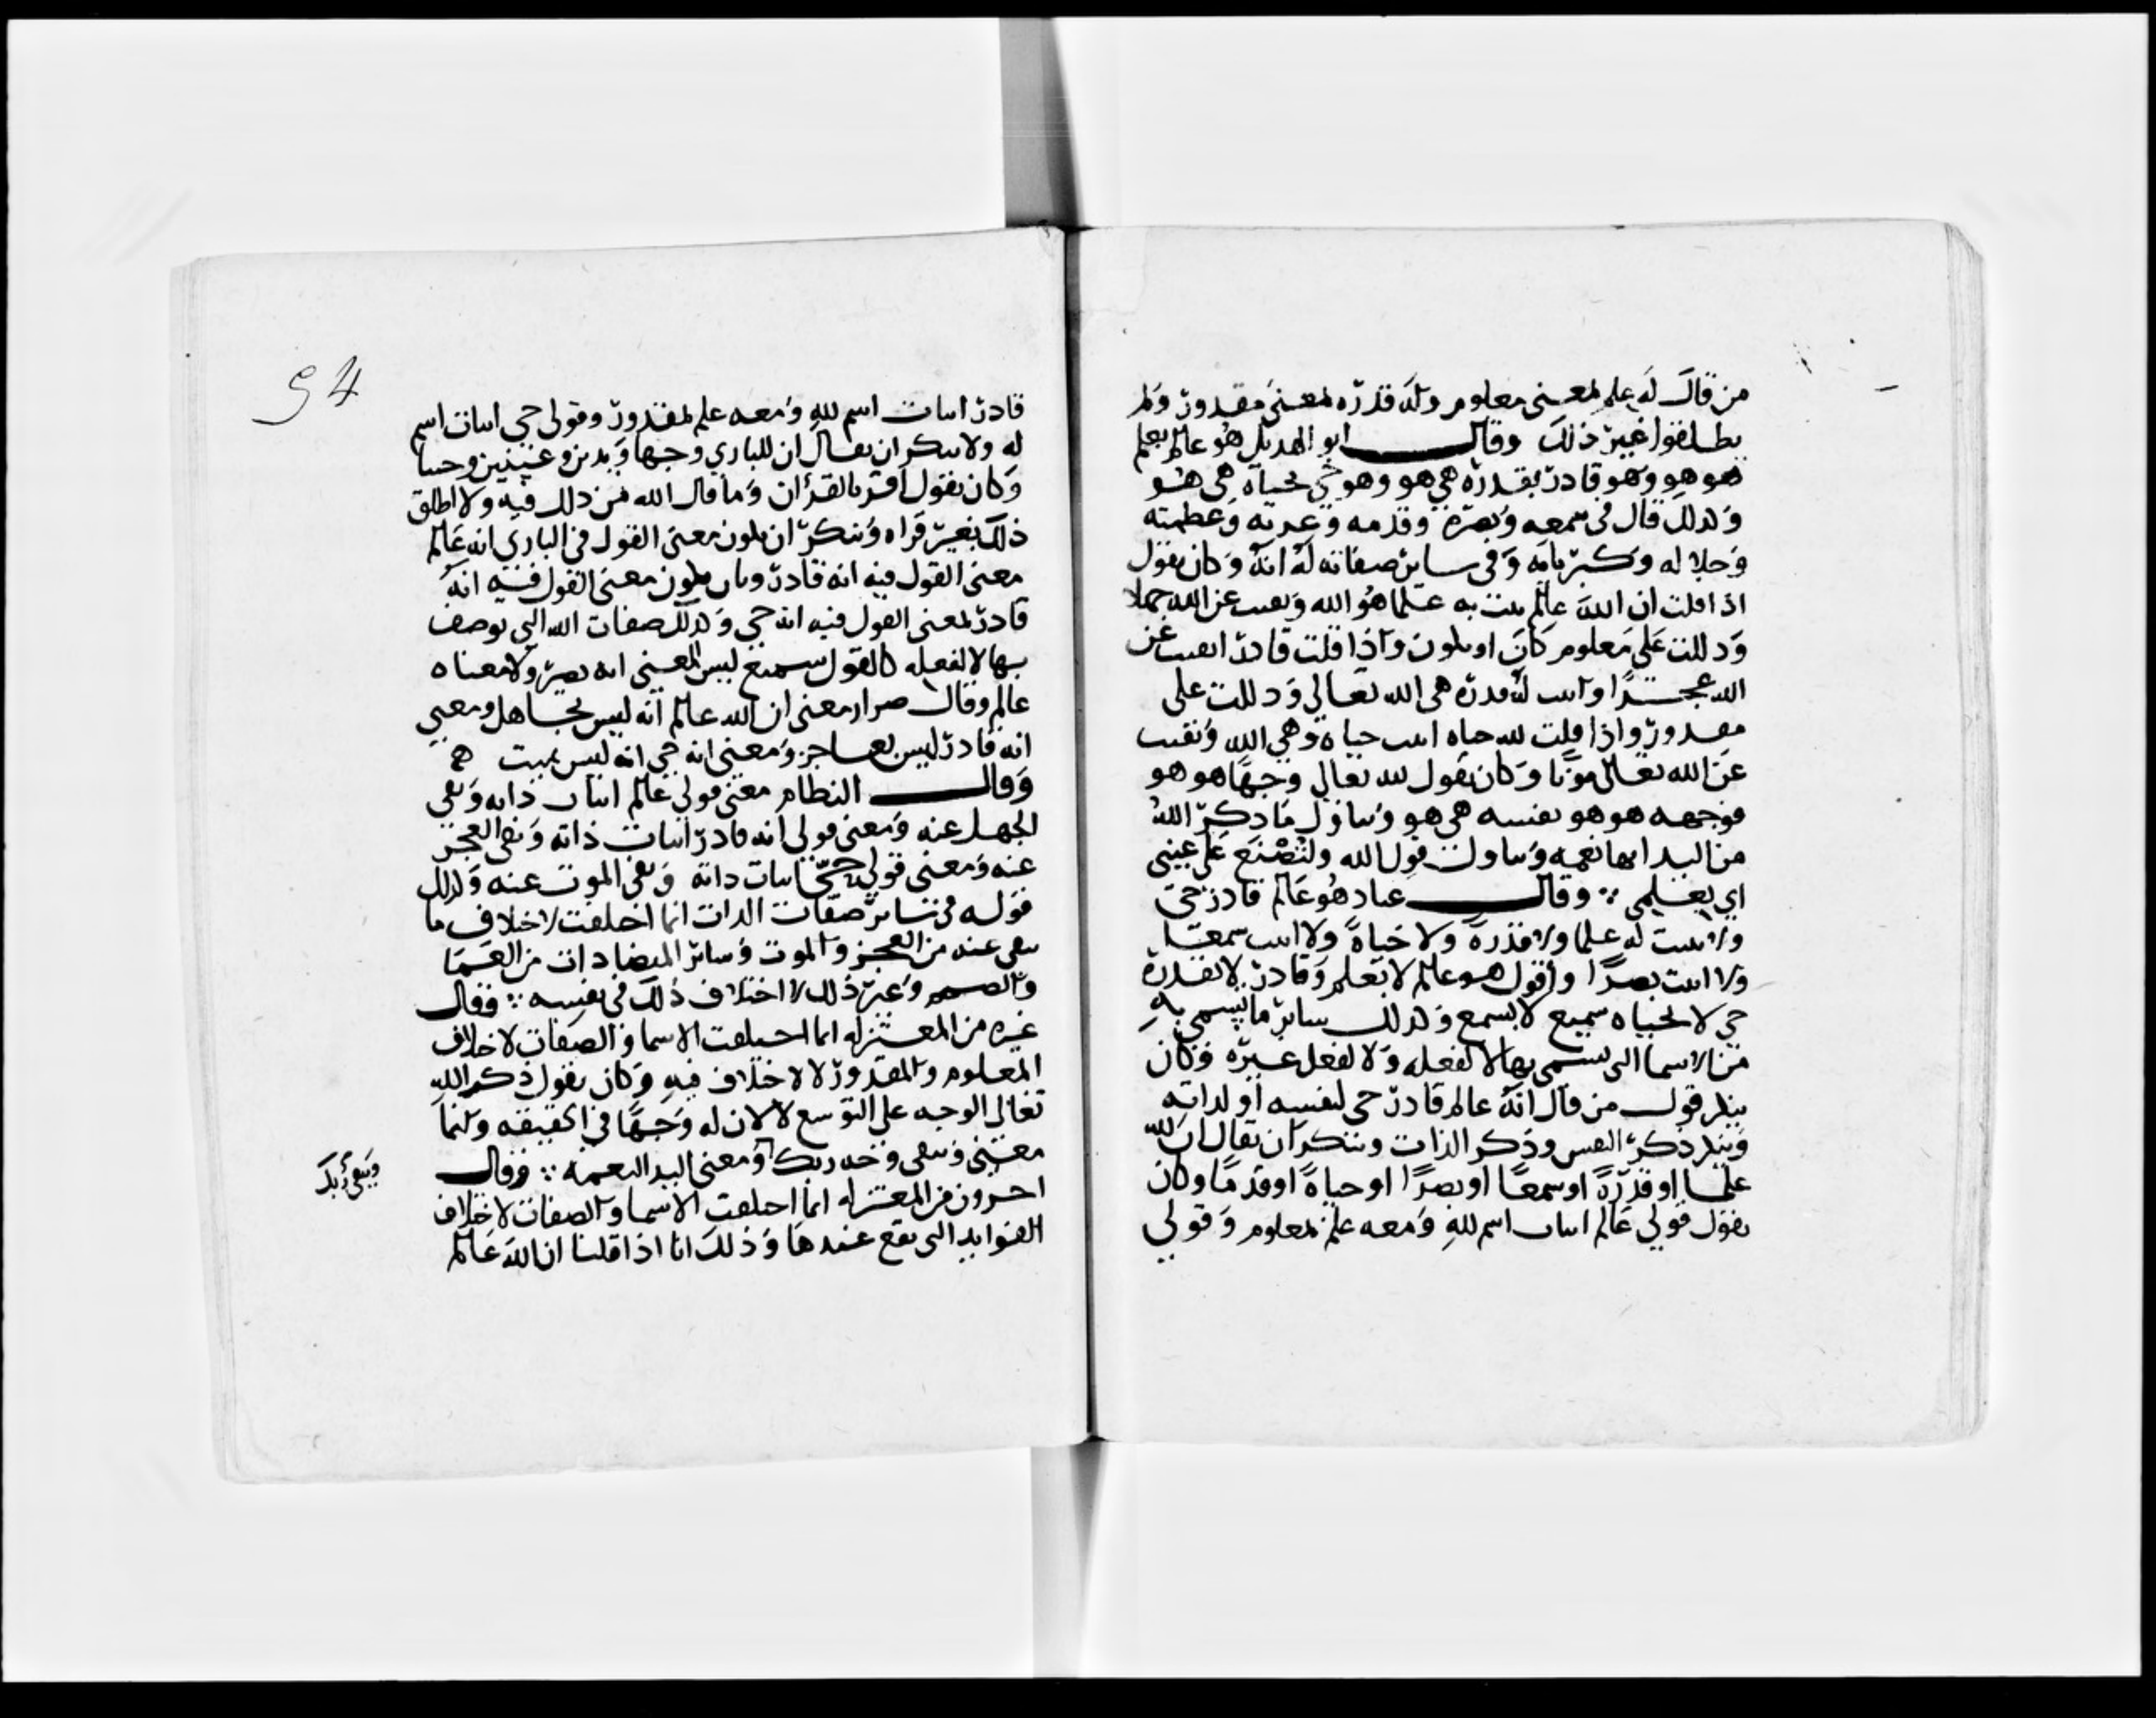 من قال له علم لمعنى معلوم وله قدره لمعنى مقدور ولم
يطلقوا غير ذلك وقال ابو الهذيل هو عالم بعلم
هو هو وهو قادر بقدره هي هو وهو حي بحياه هي هو
وكذلك قال في سمعه وبصره وقدمه وعزته وعظمته
وجلاله وكبريائه وفي ساير صفاته له انه وكان يقول
اذا قلت ان الله عالم ثبت به علما هو الله ونفيت عن الله جهلا
ودللت على معلوم كان او يكون واذا قلت قادر نفيت عن
الله عجزا واثبت له قدره هي الله تعالى ودللت على
مقدور واذا قلت لله حياه اثبت حياه وهي الله ونفيت
عن الله تعالى موتا وكان يقول لله تعالى وجها هو هو
فوجهه هو هو نفسه هي هو وتناول ما ذكر الله
من اليد انها نعمه وتناول قول الله ولتصنع على عيني
اي بعلمي ∴ وقال عباد هو عالم قادر حي
ولا اثبت له علما ولا قدرة ولا حياة ولا اثبت سمعا
ولا اثبت بصرا واقول هو عالم لا بعلم وقادر لا بقدرة
حي لا بحياه سميع لا بسمع وكذلك ساير ما يسمى به
من الاسما التي يسمى بها لا لفعله ولا لفعل غيره وكان
ينكر قول من قال انه عالم قادر حي لنفسه او لذاته
وينكر ذكر النفس وذكر الذات وينكر ان يقال ان لله
علما او قدرة او سمعا او بصرا او حياة او قدما وكان
يقول قولي عالم اثبات اسم لله ومعه علم لمعلوم وقولي
قادر اثبات اسم لله ومعه علم لمقدور وقولي حي اثبات اسم
له ولا ينكر ان يقال ان للباري وجها ويدين وعينين وجنبا
وكان يقول اقر بالقرأن وما قال الله من ذلك فيه ولا اطلق
ذلك بغير قراه وينكر ان يكون معنى القول في الباري انه عالم
معنى القول فيه انه قادر وبان يكون معنى القول فيه انه
قادر لمعنى القول فيه انه حي وكذلك صفات الله التي يوصف
بها لا لفعله كالقول سميع ليس المعنى انه بصير ولا معناه
عالم وقال ضرار معنى ان الله عالم انه ليس بجاهل ومعنى
انه قادر ليس بعاجز ومعنى انه حي انه ليس بميت
وقال النظام معنى قولي عالم اثبات ذاته ونفي
الجهل عنه ومعنى قولي انه قادر اثبات ذاته ونفي العجز
عنه ومعنى قولي حي اثبات ذاته ونفي الموت عنه وكذلك
قوله في ساير صفات الذات انما اختلفت لاختلاف ما
ينفى عنه من العجز والموت وساير المتضادات من العما
والصمم وغير ذلك لا اختلاف ذلك في نفسه ∴ وقال
غيره من المعتزله انما اختلفت الاسما والصفات لاختلاف
المعلوم والمقدور لا لاختلاف فيه وكان يقول ذكر الله
تعالى الوجه على التوسع لا لان له وجها في الحقيقه وانما
معنى ويبقى وجه ربك ومعنى اليد النعمه ∴ وقال
ويبقى ربك
اخرون من المعتزله انما اختلفت الاسما والصفات لاختلاف
الفوايد التي تقع عندها وذلك انا اذا قلنا ان الله عالم